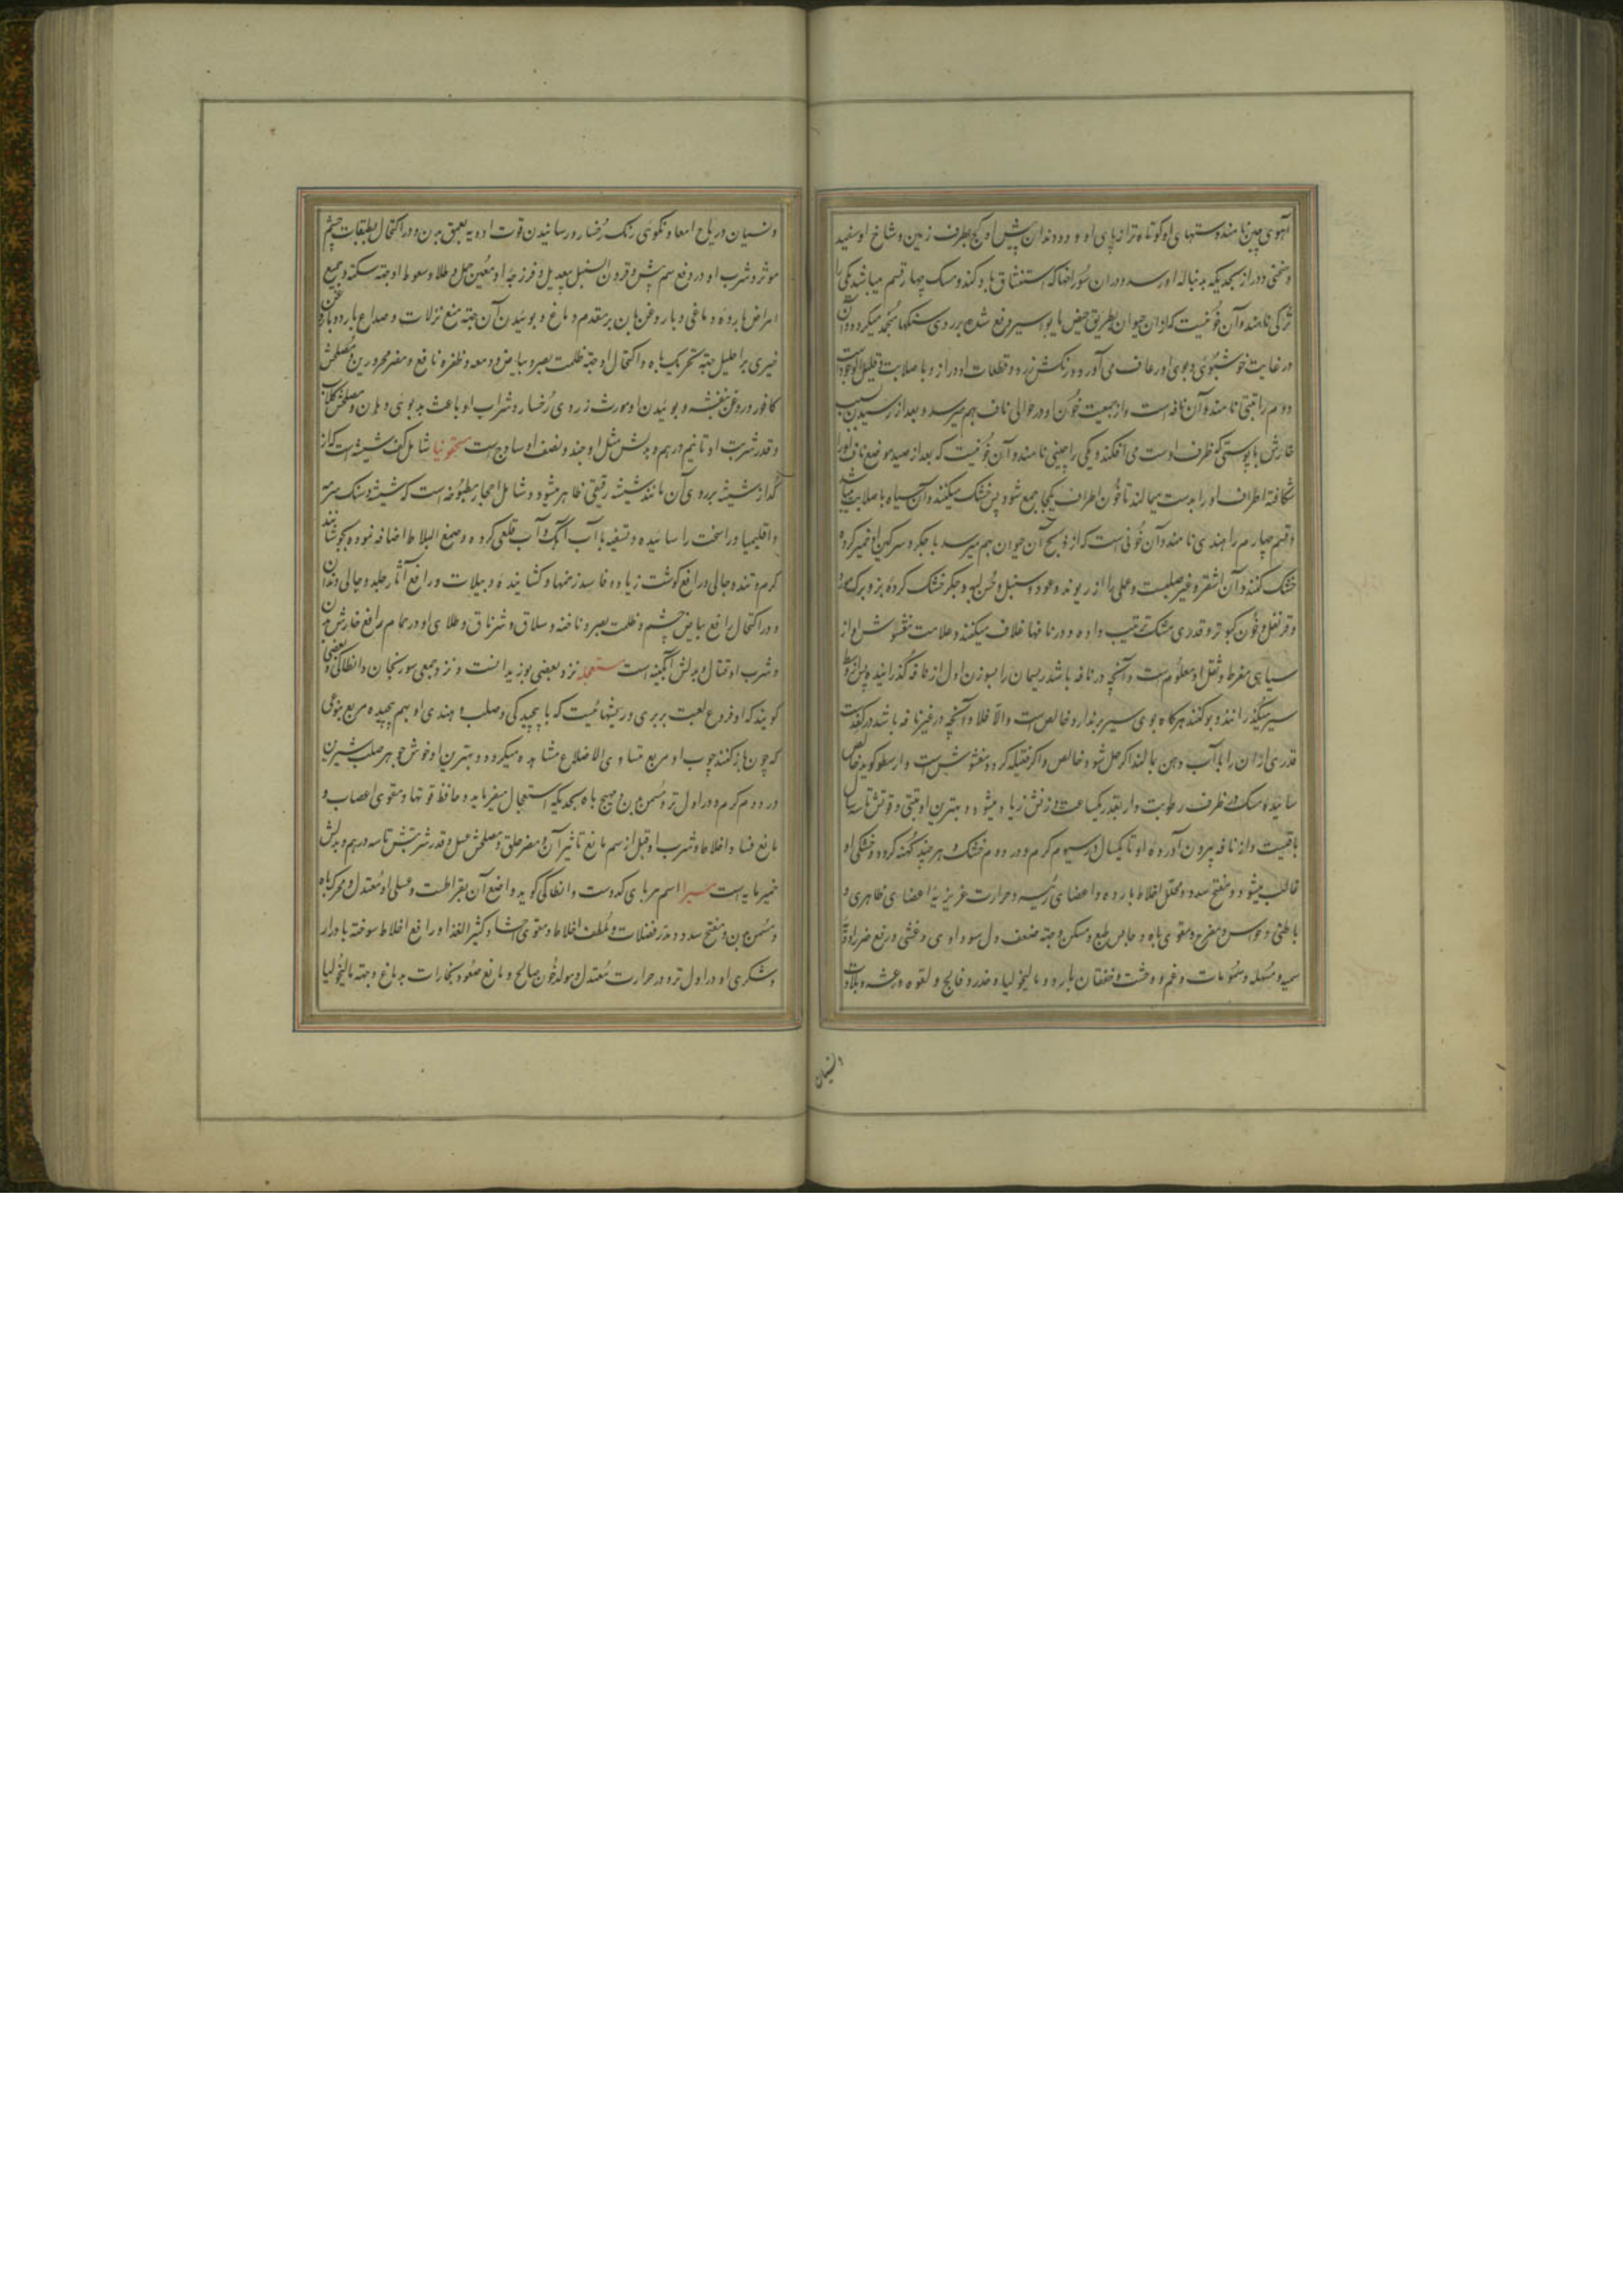 آهوی چین نامند و دستهای او کوتاه تر از پای او و دو دندان پیش او کج بطرف زمین و شاخ او سفید
و منحنی و دراز بحدیکه به دنباله او رسد و در آن سوراخها که استنشاق باد کند و مسک چهار قسم میباشد یکی را
ترکی نامند و آن خونیست که از آن حیوان بطریق حیض یا بواسیر دفع شده بر روی سنگها منجمد میگردد و آن
در غایت خوشبوئی و بوی او رعاف می آورد و رنگش زرد و قطعات او دراز و با صلابت و قلیل الوجود است
دوم را تبتی نامند و آن نافه است و از جمعیت خون او در حوالی ناف بهم میرسد و بعد از رسیدن بسبب
خارش با پوستی که ظرف اوست می افکند و یکی را چینی نامند و آن خونیست که بعد از صید موضع ناف او را
شکافته اطراف او را بدست میمالند تا خون اطراف یکجا جمع شود پس خشک میکنند و آن سیاه با صلابت میباشد
و قسم چهارم را هندی نامند و آن خونی است که از ذبح آن حیوان بهم میرسد با جگر و سرگین او خمیر کرده
خشک کنند و آن اشقر و غیر صلبست و عملی را از ریوند و عود و سنبل و جگر خشک کرده بز و برگ مورد
و قرنفل و خون کبوتر و قدری مشک ترتیب داده و در نافها غلاف میکنند و علامت مغشوش او از
سیاهی مفرط و ثقل او معلوم است و آنچه در نافه باشد ریسمان را بسوزن اول از نافه گذرانیده پس از وسط
سیر میگذرانند و بو کنند هرگاه بوی سیر ندارد خالص است والا فلا و آنچه در غیر نافه باشد در کف دست
قدری از آن را با آب دهن بمالند اگر حل شود خالص و اگر فتیله گردد مغشوش است و ارسطو گوید خالص
سائیده مسک در ظرف رطوبت دار بقدر یکساعت وزنش زیاد میشود و بهترین او تبتی و قوتش تا سه سال
باقیست و از نافه بیرون آورده او تا یکسال و در سیوم گرم و در دوم خشک و هر چند کهنه گردد خشکی او
غالب میشود و مفتح سدد و محلل اخلاط بارده و اعضای رئیسه و حرارت غریزیه اعضای ظاهری و
باطنی و حواس و مفرح و مقوی باه و حابس طبع و مسکن و جهة ضعف دل سوداوی و غشی و رفع ضرر ادویه
سمیه و مسهله و سموم و غم و وحشت و خفقان بارد و مالیخولیا و خدر و فالج و لقوه و رعشه و بلادت
النسیان
و نسیان و ریاح امعا و نکوئی رنک رخسار و رسانیدن قوت ادویه بعمق بدن و در اکتحال بطبقات چشم
موثر و شرب او در دفع سم بیش و قرون السنبل بیعدیل و فرزجهٔ او معین حمل و طلا و سعوط او جهة سکته و جمیع
امراض بارده دماغی و با روغن بان بر مقدم دماغ و بوئیدن آن جهة منع نزلات و صداع بارد و با روغن
خیری بر احلیل جهة تحریک باه و اکتحال او جهة ظلمت بصر و بیاض و دمعه و ظفره نافع و مضر محرورین و مصلحش
کافور و روغن بنفشه و بوئیدن او مورث زردی رخسار و شراب او باعث بدبوئی دهان و مصلحش گلاب
و قدر شربت او تا نیم درهم و بدلش مثل او جند و نصف او ساذج است مسحقونیا شامل کف شیشه است که از
گداز شیشه بر روی آن مانند شیشه رقیقی ظاهر میشود و شامل احجار مطبوخه است که شیشه و سنک سرمه
و اقلیمیا و راسخت را سائیده و تسقیه با آب آهک و آب قلعی کرده و صمغ البلاط اضافه نموده بجوشانند
گرم و تند و جالی و رافع گوشت زیاده و فاسد زخمها و کشاینده دبیلات و رافع آثار جلد و جالی دندان
و در اکتحال رافع بیاض چشم و ظلمت بصر و ناخنه و سلاق و شرناق و طلای او در حمام رافع خارش بدن
و شرب او قتال و بدلش آبگینه است مستعجله نزد بعضی بوزیدانست و نزد جمعی سورنجان و انطاکی و بعضی
گویند که او فروع لعبت بربری و ریشهائیست که با پیچیدگی و صلب و هندی او بهم پیچیده مربع بنوعی
که چون باز کنند چوب او مربع متساوی الاضلاع مشاهده میگردد و بهترین او خوش جوهر صلب شیرین
در دوم گرم و در اول تر و مسمن بدن و مهیج باه بحدیکه استعجال میفرماید و حافظ قوتها و مقوی اعصاب و
مانع فساد اخلاط و شرب او قبل از سم مانع تاثیر آن و مضر حلق و مصلحش عسل و قدر شربتش تا سه درهم و بدلش
خمیرمایه است مسیرا اسم مربای کدوست و انطاکی گوید واضع آن بقراطست و عسلی او معتدل و محرک باه
و مسمن بدن و مفتح سدد و مدر فضلات و ملطف اخلاط و مقوی احشا و کثیر الغذا و رافع اخلاط سوخته با درار
و شکری او در اول تر و در حرارت معتدل و مولد خون صالح و مانع صعود بخارات بدماغ و جهة مالیخولیا